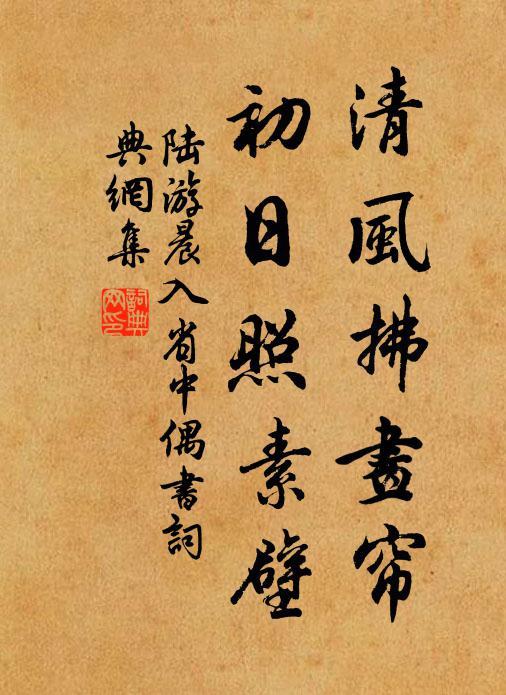 清風拂畫帘
初日照素壁
陸游晨入省中偶書詞
典網集
詞典网印